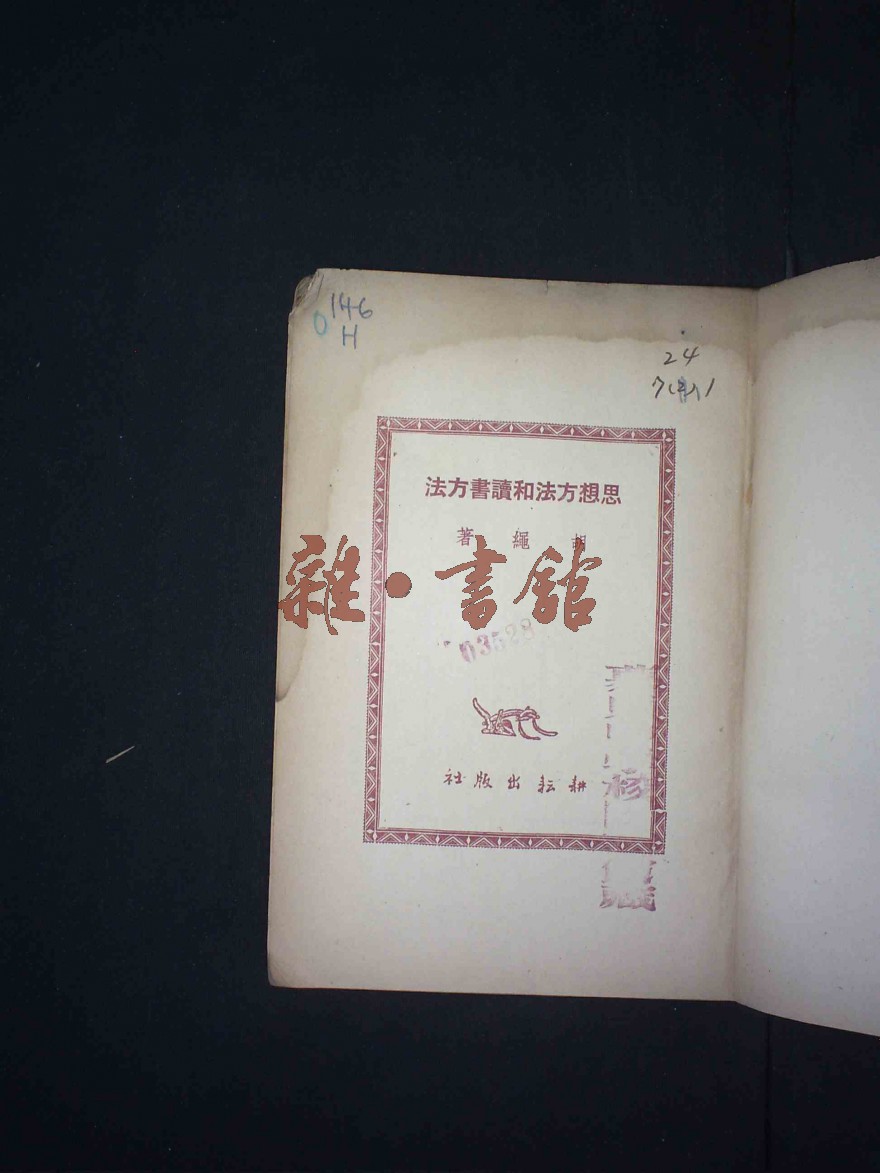 146
H
24
思想方法和讀書方法
胡繩著
雜·書館
03528
耕耘出版社